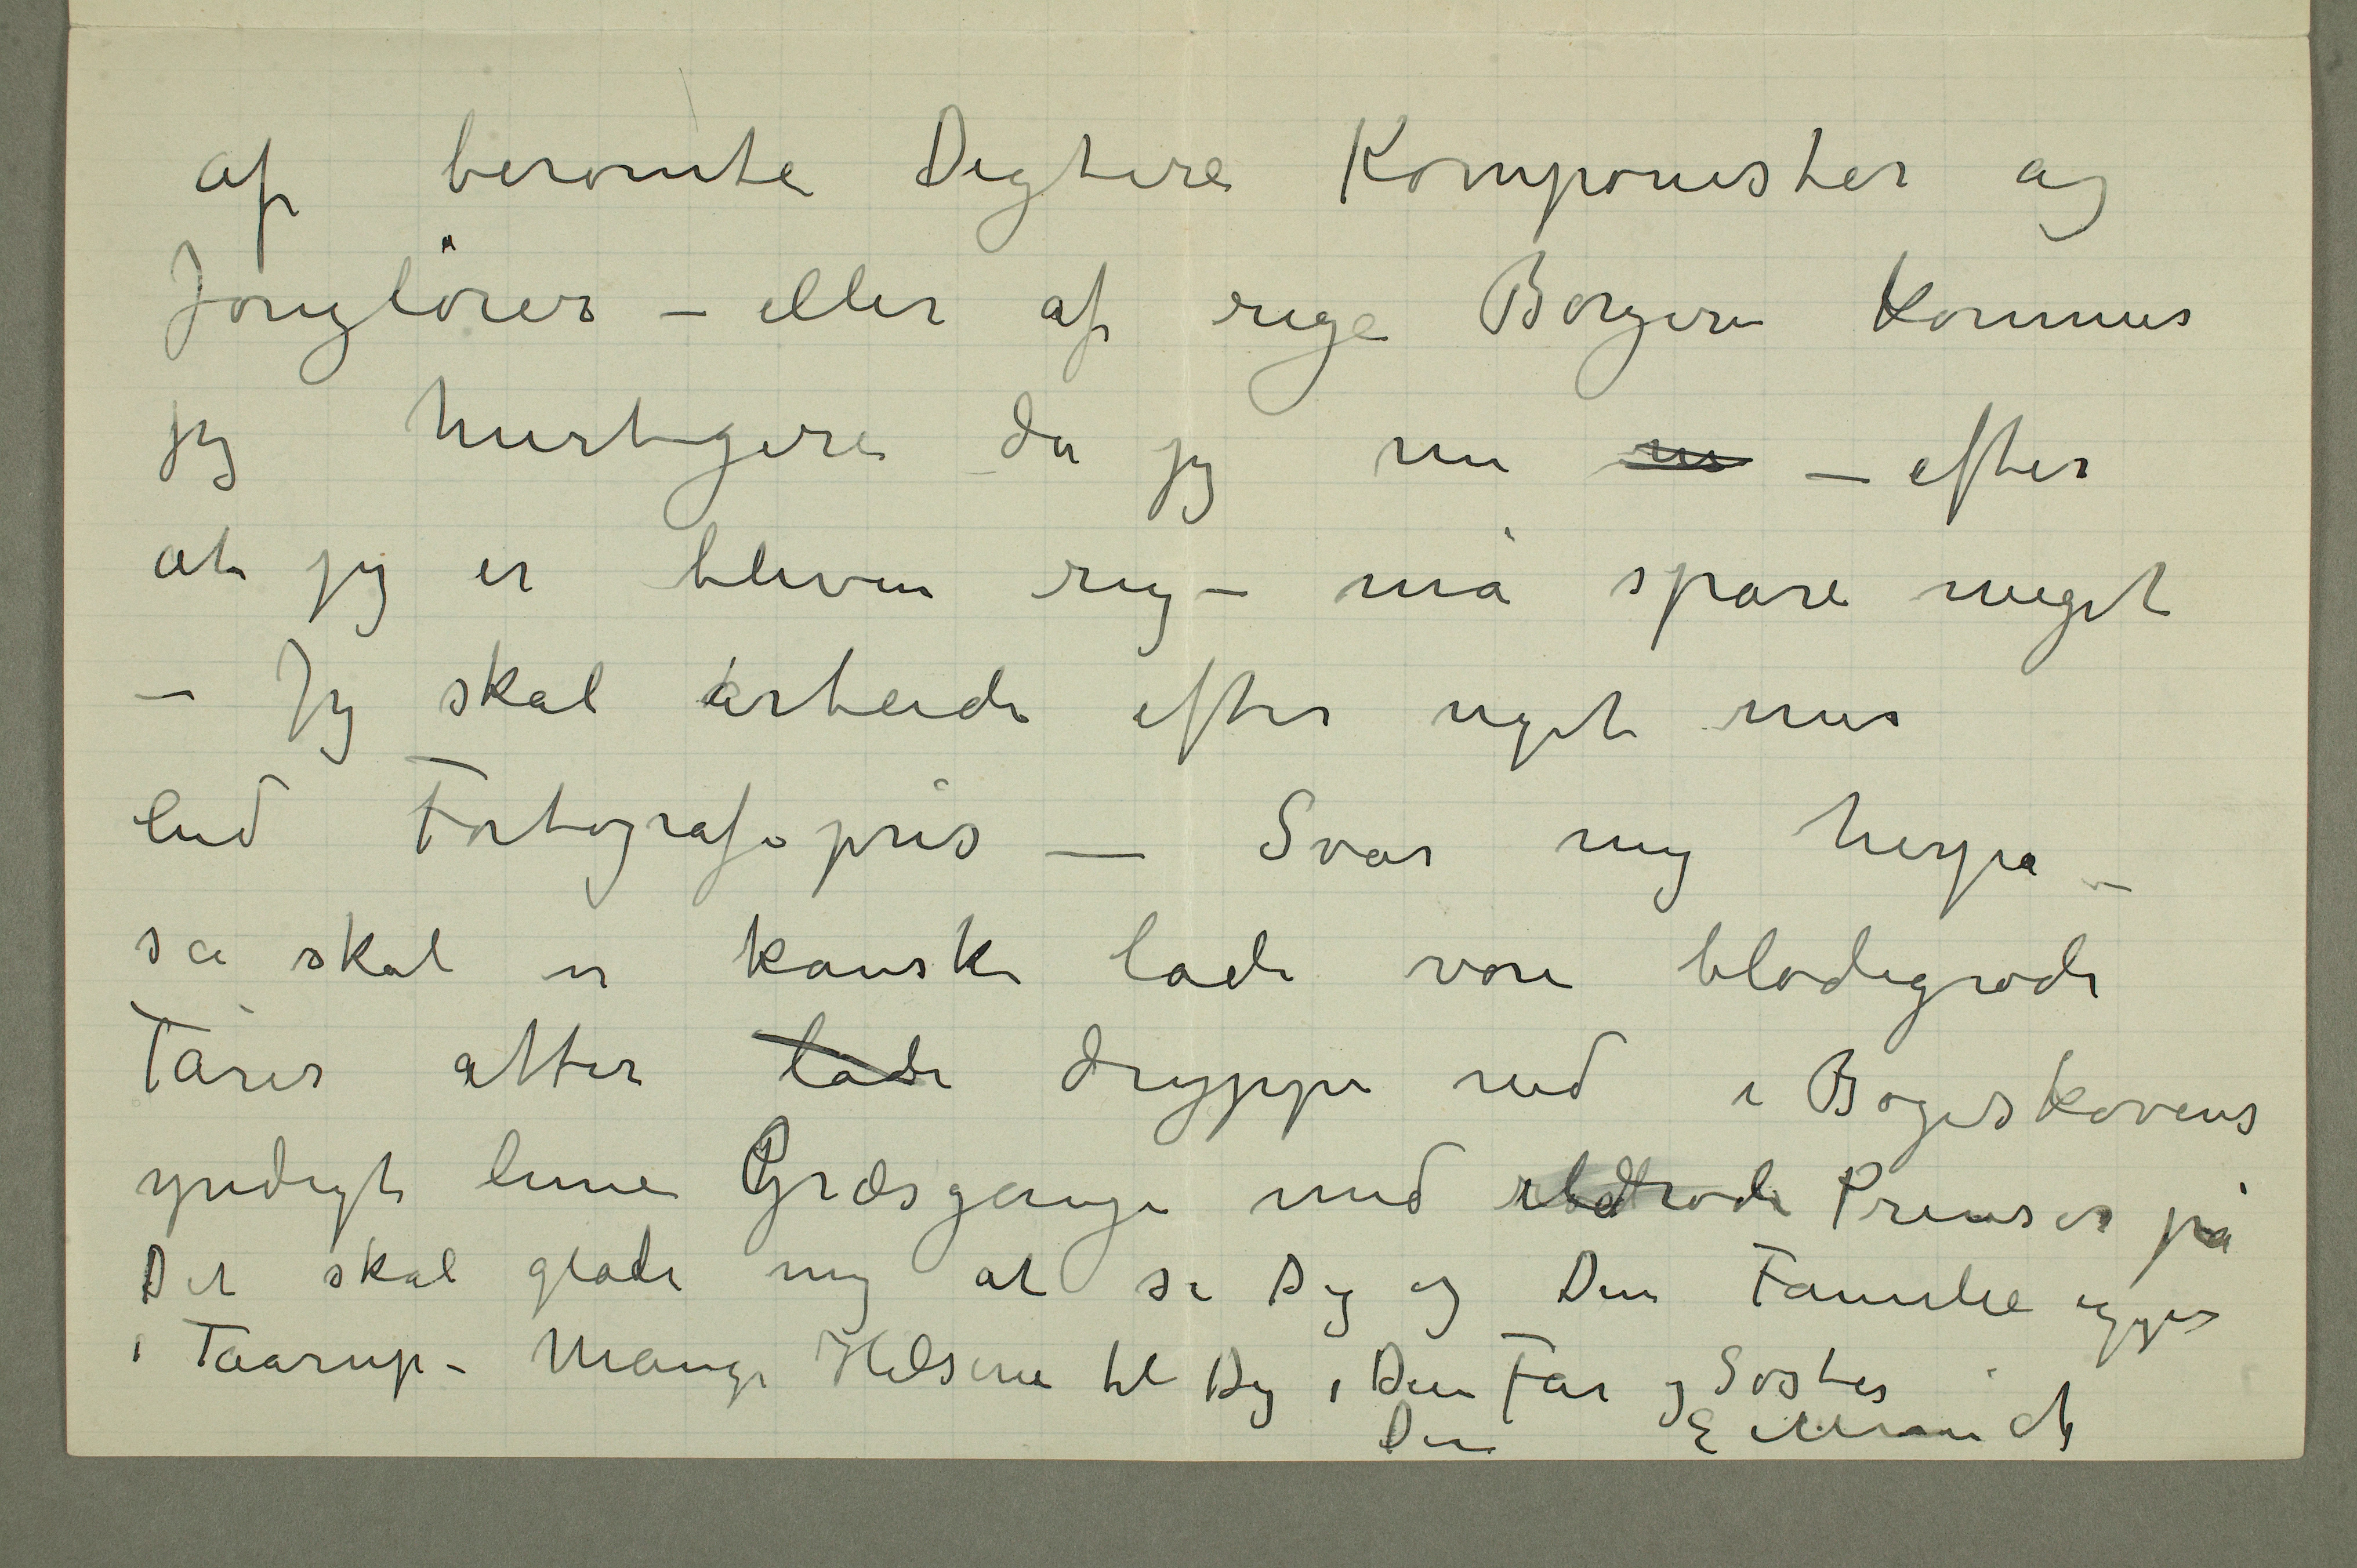 af berömte Digtere Komponister og
Jonglører – eller af rige Borgere kommer
jeg hurtigere da jeg nu – efter
at jeg er bleven rig – må spare meget
– Jeg skal arbeide efter noget mer
end Fortografipris — Svar mig herpå –
så skal vi kanske lade vore blodigrøde
Tårer atter lade dryppe ned i Bøgeskovens
yndigt lune Græsgange med røde Prinser på
Det skal glæde mig at se Dig og Din Familie igjen
i Taarup – Mange Hilsener til Dig, Din Far og Søster
Din E Munch